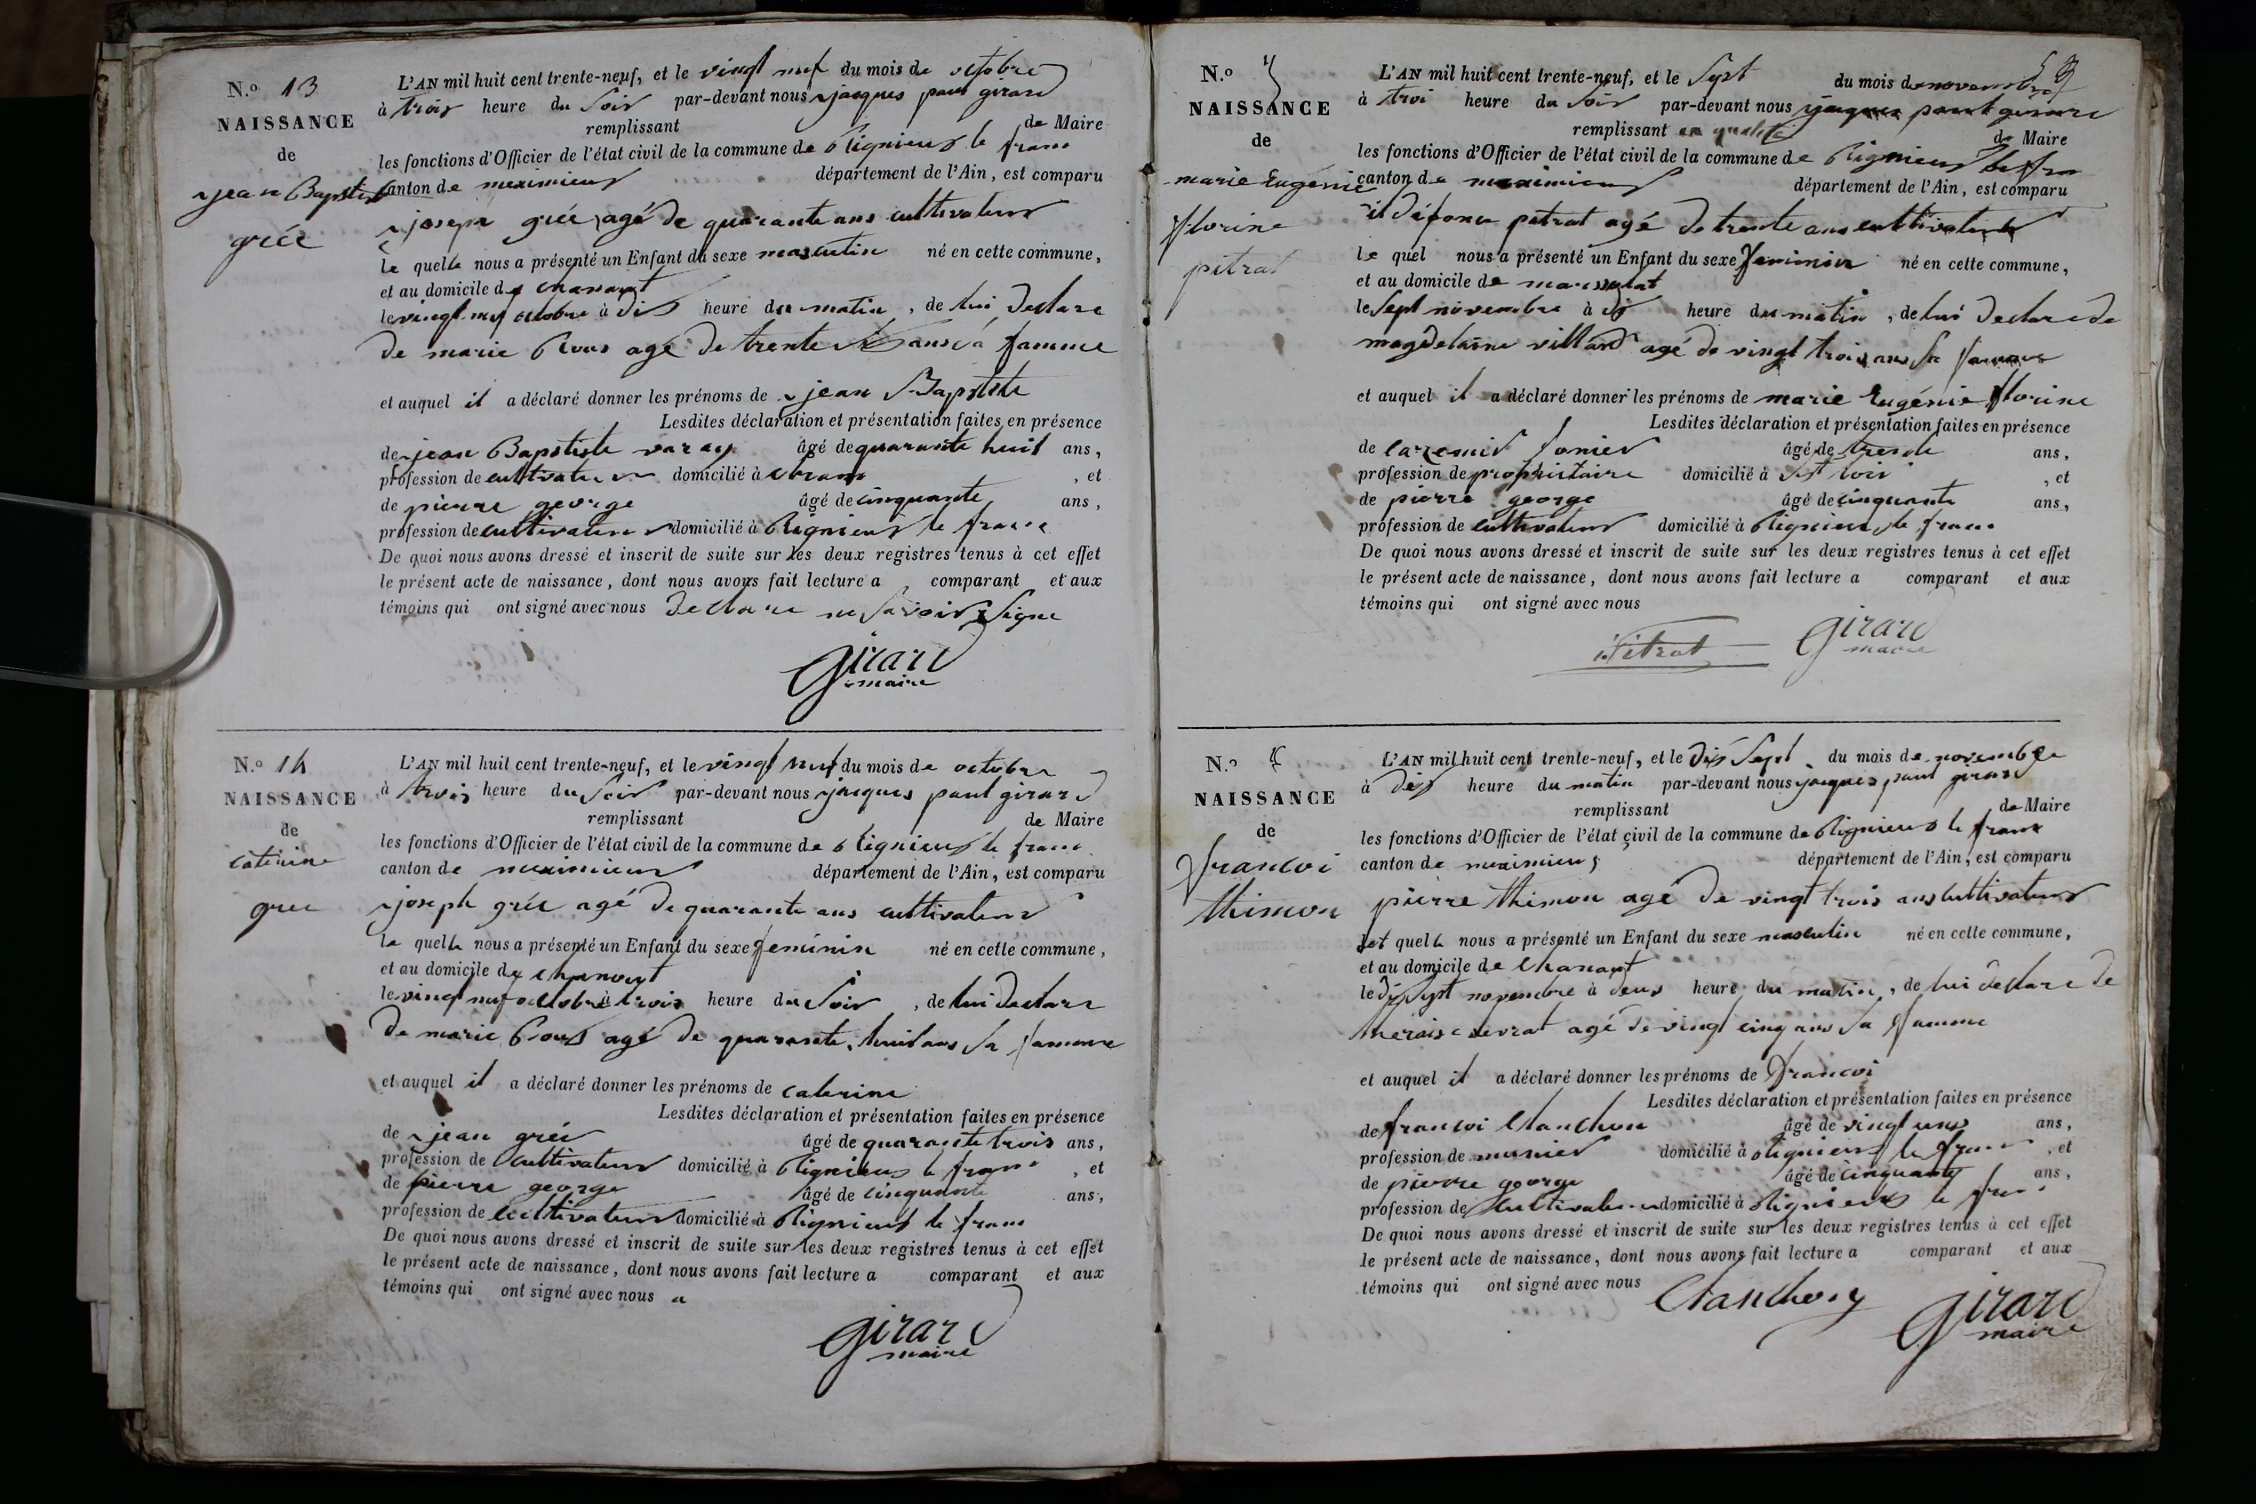 N.º 13
NAISSANCE
de
jean Baptiste
grée
L'AN mil huit cent trente-neuf, et le vingt neuf du mois de octobre
à trois heure du soir par-devant nous jacques paul girard
remplissant de Maire
les fonctions d'Officier de l'état civil de la commune de Rignieux le franc
canton de meximieux département de l'Ain, est comparu
joseph grée agé de quarante ans cultivateur
le quelle nous a présenté un Enfant du sexe masculin né en cette commune,
et au domicile de chanant
le vingt neuf octobre à dix heure du matin, de lui declare
de marie Rous agé de trente ans sa famme
et auquel il a déclaré donner les prénoms de jean Baptiste
Lesdites déclaration et présentation faites en présence
de jean Baptiste varay âgé de quarante huit ans,
profession de cultivateur domicilié à , et
de pierre george âgé de cinquante ans,
profession de cultivateur domicilié à Rignieux le franc
De quoi nous avons dressé et inscrit de suite sur les deux registres tenus à cet effet
le présent acte de naissance, dont nous avons fait lecture a comparant et aux
témoins qui ont signé avec nous declare ne savoir signe
Girard
maire
N.º 14
NAISSANCE
de
caterine
gree
L'AN mil huit cent trente-neuf, et le vingt neuf du mois de octobre
à trois heure du soir par-devant nous jacques paul girard
remplissant de Maire
les fonctions d'Officier de l'état civil de la commune de Rignieux le franc
canton de meximieux département de l'Ain, est comparu
joseph grée agé de quarante ans cultivateur
le quelle nous a présenté un Enfant du sexe feminin né en cette commune,
et au domicile de chanant
le vingt neuf octobre à trois heure du soir, de lui declare
de marie Rous agé de quarante huit ans sa famme
et auquel il a déclaré donner les prénoms de caterine
Lesdites déclaration et présentation faites en présence
de jean grée âgé de quarante trois ans,
profession de cultivateur domicilié à Rignieux le franc , et
de pierre george âgé de cinquante ans,
profession de cultivateur domicilié à Rignieux le franc
De quoi nous avons dressé et inscrit de suite sur les deux registres tenus à cet effet
le présent acte de naissance, dont nous avons fait lecture a comparant et aux
témoins qui ont signé avec nous
Girard
maire
N.º
NAISSANCE
de
marie Eugénie
florine
pitrat
L'AN mil huit cent trente-neuf, et le Sept du mois de novembre
à troi heure du soir par-devant nous jacques paul girard
remplissant en qualité de Maire
les fonctions d'Officier de l'état civil de la commune de Rignieux le fran
canton de meximieux département de l'Ain, est comparu
pitrat agé de trente ans cultivateur
le quel nous a présenté un Enfant du sexe feminin né en cette commune,
et au domicile de
le Sept novembre à dix heure du matin, de lui declare de
magdelaine villard agé de vingt trois ans sa famme
et auquel il a déclaré donner les prénoms de marie Eugénie florine
Lesdites déclaration et présentation faites en présence
de âgé de trente ans,
profession de propriétaire domicilié à , et
de pierre george âgé de cinquante ans,
profession de cultivateur domicilié à Rignieux le franc
De quoi nous avons dressé et inscrit de suite sur les deux registres tenus à cet effet
le présent acte de naissance, dont nous avons fait lecture a comparant et aux
témoins qui ont signé avec nous
Pitrat Girard
maire
N.º
NAISSANCE
de
francoi
thimon
L'AN mil huit cent trente-neuf, et le dix Sept du mois de novembre
à dix heure du matin par-devant nous jacques paul girard
remplissant de Maire
les fonctions d'Officier de l'état civil de la commune de Rignieux le franc
canton de meximieux département de l'Ain, est comparu
pierre thimon agé de vingt trois ans cultivateur
quelle nous a présenté un Enfant du sexe masculin né en cette commune,
et au domicile de chanant
le dix Sept novembre à deux heure du matin, de lui declare de
agé de vingt cinq ans sa famme
et auquel il a déclaré donner les prénoms de francoi
Lesdites déclaration et présentation faites en présence
de francoi Chanchon âgé de vingt ans,
profession de munier domicilié à Rignieux le franc , et
de pierre george âgé de cinquante ans,
profession de cultivateur domicilié à Rignieux le franc
De quoi nous avons dressé et inscrit de suite sur les deux registres tenus à cet effet
le présent acte de naissance, dont nous avons fait lecture a comparant et aux
témoins qui ont signé avec nous
Girard
maire